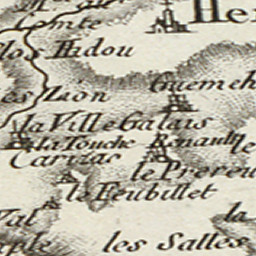 Comte
Hen
clos Hidou
Guemeh
es Lion
la Ville Galais
la Touche Renault le
Carizas
le Preveu
le Feubillet
Val
la
les Salles